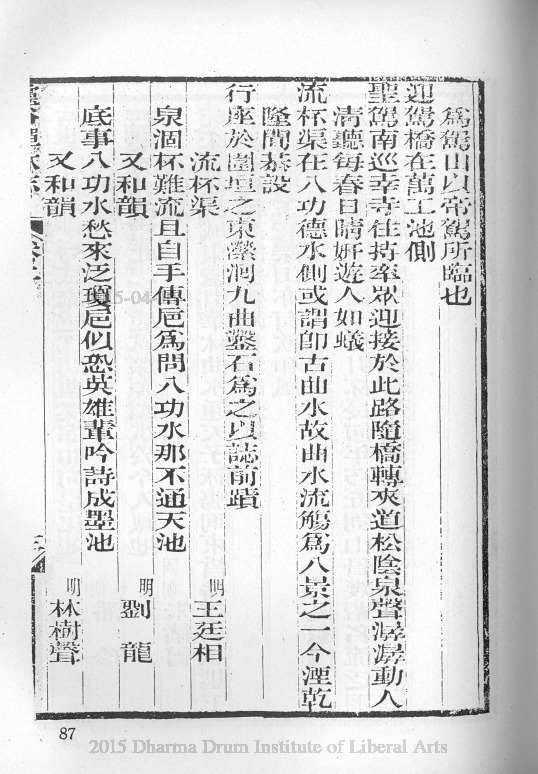 為駕山以帝駕所臨也
迎駕橋在萬工池側
聖駕南巡幸寺住持率眾迎接於此路隨橋轉夾道松陰泉聲潺潺動人
清聽每春日晴妍遊人如蟻
流杯渠在八功德水側或謂卽古曲水故曲水流觴為八景之一今湮乾
隆間恭設
行座於圜垣之東瀠洄九曲鑿石為之以誌前蹟
流杯渠
明 王廷相
泉涸杯難流且自手傳卮為問八功水那不通天池
又和韻
明 劉龍
底事八功水愁來泛瓊卮似恐英雄輩吟詩成墨池
又和韻
明 林樹聲
87
2015 Dharma Drum Institute of Liberal Arts